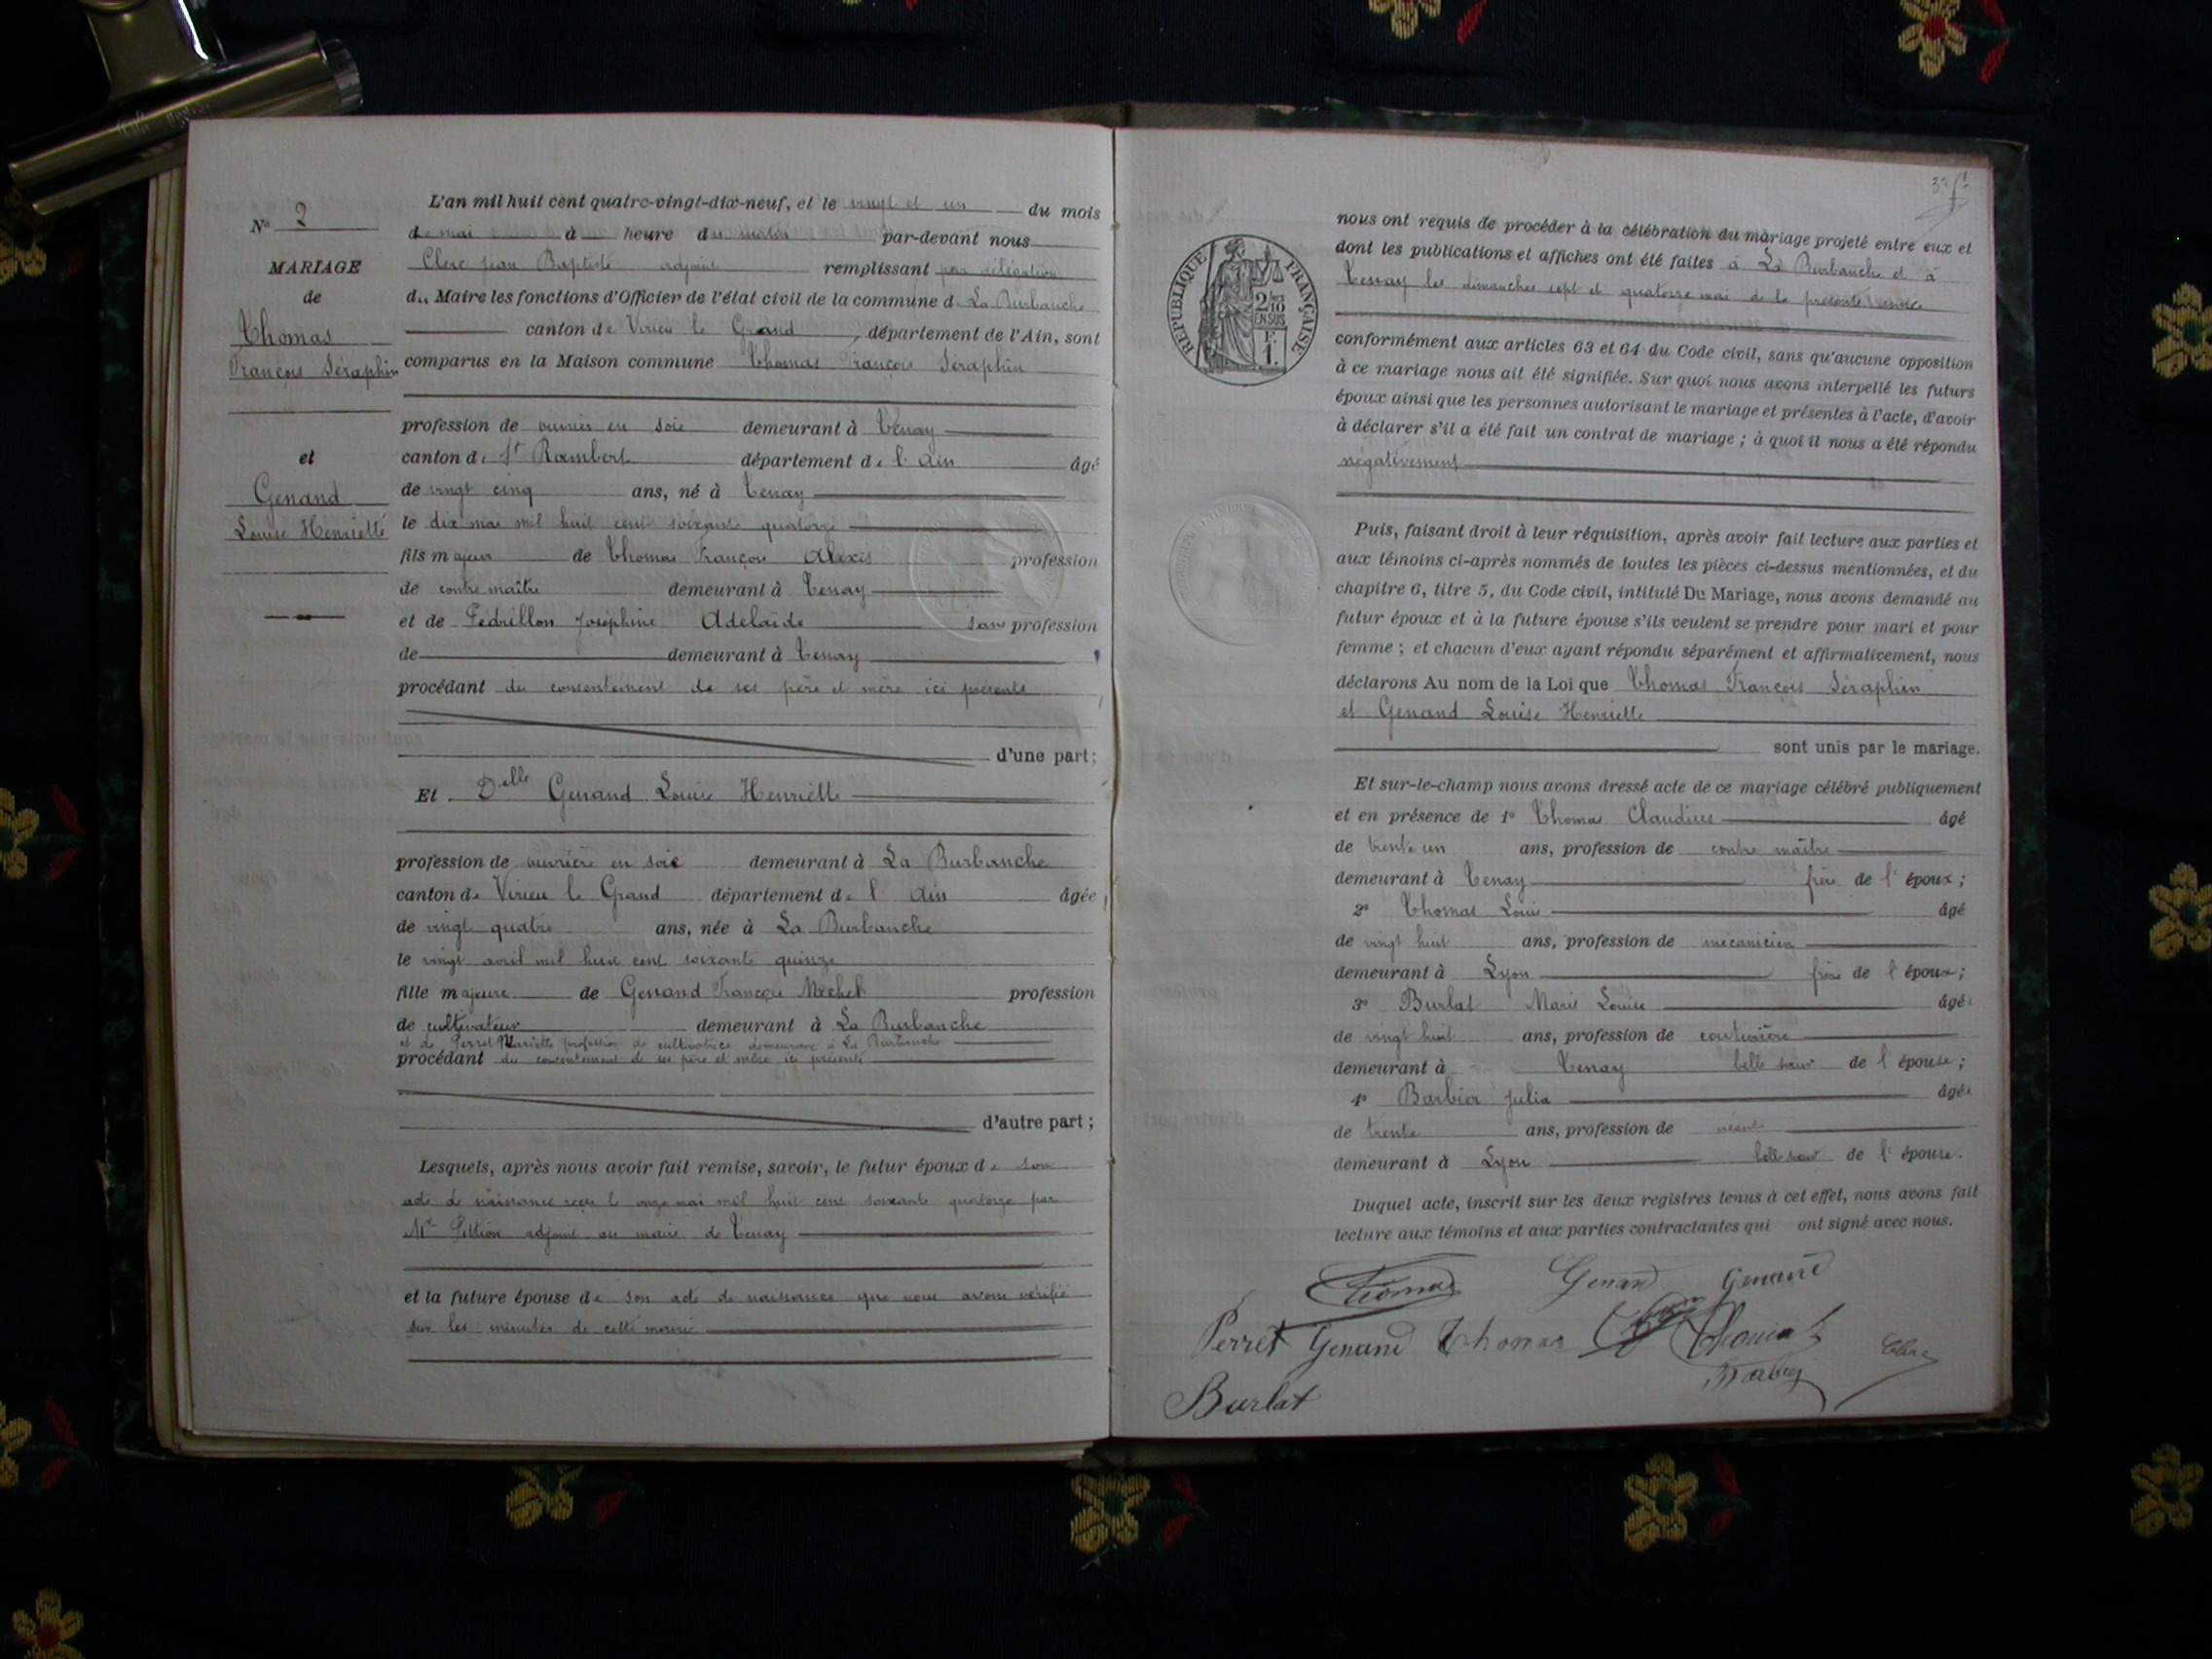 N° 2
MARIAGE
de
Thomas
François Séraphin
et
Genand
Louise Henriette
L'an mil huit cent quatre-vingt-dix-neuf, et le vingt et un du mois
de mai à heure du matin par-devant nous
Clerc Jean Baptiste adjoint remplissant par délégation
du Maire les fonctions d'Officier de l'état civil de la commune de La Burbanche
canton de Virieu le Grand, département de l'Ain, sont
comparus en la Maison commune Thomas François Séraphin
profession de ouvrier en soie demeurant à Tenay
canton de St Rambert département de l'Ain âgé
de vingt cinq ans, né à Tenay
le dix mai mil huit cent soixante quatorze
fils majeur de Thomas François Alexis profession
de contre maître demeurant à Tenay
et de Pédrillon Joséphine Adelaïde sans profession
de demeurant à Tenay
procédant du consentement de ses père et mère ici présents
d'une part;
Et Delle Genand Louise Henriette
profession de ouvrière en soie demeurant à La Burbanche
canton de Virieu le Grand département de l'Ain âgée
de vingt quatre ans, née à La Burbanche
le vingt avril mil huit cent soixante quinze
fille majeure de Genand François Michel profession
de cultivateur demeurant à La Burbanche
et de Perret Mariette profession de cultivatrice demeurant à La Burbanche
procédant du consentement de ses père et mère ici présents
d'autre part;
Lesquels, après nous avoir fait remise, savoir, le futur époux de son
acte de naissance reçu le onze mai mil huit cent soixante quatorze par
Mr adjoint au maire de Tenay
et la future épouse de son acte de naissance que nous avons vérifié
sur les minutes de cette mairie
3e ft
RÉPUBLIQUE FRANÇAISE
2/10
EN SUS
F.
1.
nous ont requis de procéder à la célébration du mariage projeté entre eux et
dont les publications et affiches ont été faites à La Burbanche et à
Tenay les dimanches sept et quatorze mai de la présente année
conformément aux articles 63 et 64 du Code civil, sans qu'aucune opposition
à ce mariage nous ait été signifiée. Sur quoi nous avons interpellé les futurs
époux ainsi que les personnes autorisant le mariage et présentes à l'acte, d'avoir
à déclarer s'il a été fait un contrat de mariage; à quoi il nous a été répondu
négativement
Puis, faisant droit à leur réquisition, après avoir fait lecture aux parties et
aux témoins ci-après nommés de toutes les pièces ci-dessus mentionnées, et du
chapitre 6, titre 5, du Code civil, intitulé Du Mariage, nous avons demandé au
futur époux et à la future épouse s'ils veulent se prendre pour mari et pour
femme; et chacun d'eux ayant répondu séparément et affirmativement, nous
déclarons Au nom de la Loi que Thomas François Séraphin
et Genand Louise Henriette
sont unis par le mariage.
Et sur-le-champ nous avons dressé acte de ce mariage célébré publiquement
et en présence de 1° Thomas Claudius âgé
de trente un ans, profession de contre maître
demeurant à Tenay frère de l'époux;
2° Thomas Louis âgé
de vingt huit ans, profession de mécanicien
demeurant à Lyon frère de l'époux;
3° Burlat Marie Louise âgée
de vingt huit ans, profession de couturière
demeurant à Tenay belle sœur de l'épouse;
4° Barbier Julia âgée
de trente ans, profession de néant
demeurant à Lyon belle sœur de l'épouse.
Duquel acte, inscrit sur les deux registres tenus à cet effet, nous avons fait
lecture aux témoins et aux parties contractantes qui ont signé avec nous.
Thomas Genand Genand
Perret Genand Thomas Thomas Clerc
Barbier
Burlat